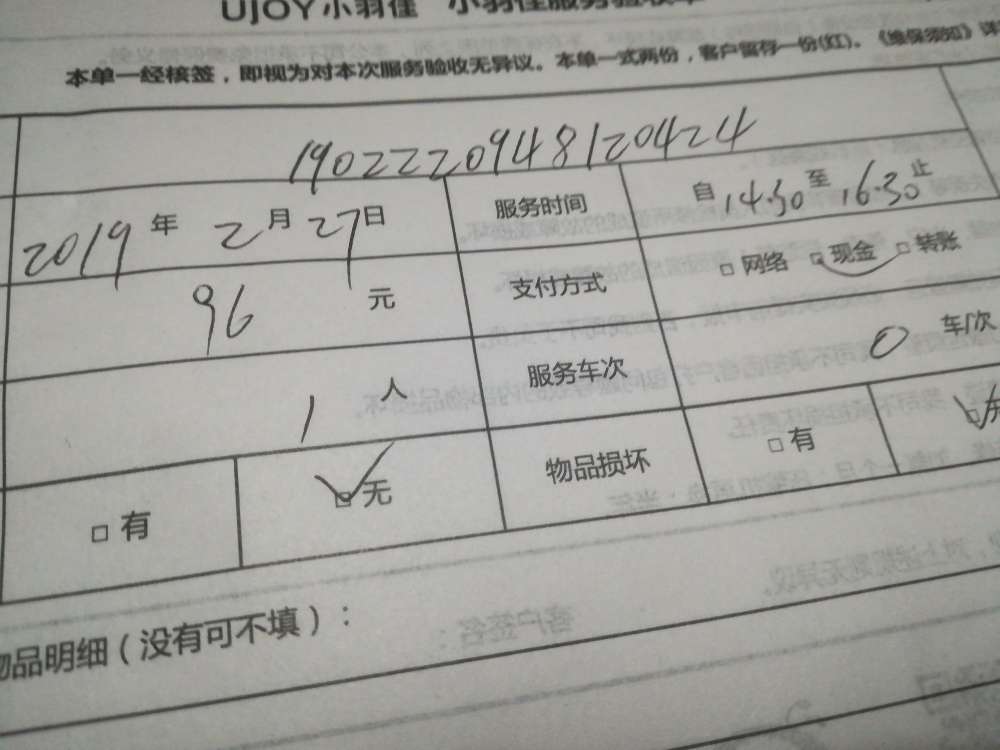 UJOY小羽佳 小羽佳服务验收单
本单一经核签，即视为对本次服务验收无异议。本单一式两份，客户留存一份(红)。《维保须知》详
19022220948120424
2019 年 2 月 27 日 服务时间 自 14.30 至 16.30 止
96 元 支付方式 □ 网络 □ 现金 □ 转账
1 人 服务车次 0 车/次
□ 有 □ 无 物品损坏 □ 有 □ 无
物品明细（没有可不填）：